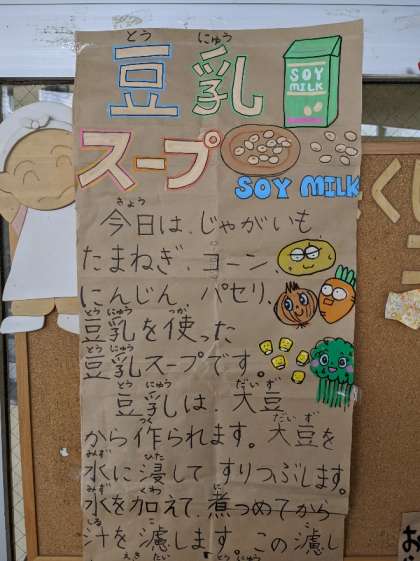 豆乳
とう にゅう
SOY
MILK
スープ
SOY MILK
きょう
今日は、じゃがいも、
たまねぎ、コーン、
にんじん、パセリ、
とうにゅう つか
豆乳を使った
とうにゅう
豆乳スープです。
とう にゅう だいず
豆乳は、大豆
つく だいず
から作られます。大豆を
みず ひた
水に浸して すりつぶします。
みず くわ に
水を加えて、煮つめてから
しる こ こ
汁を濾します。この濾し
えきたい とうにゅう
くし